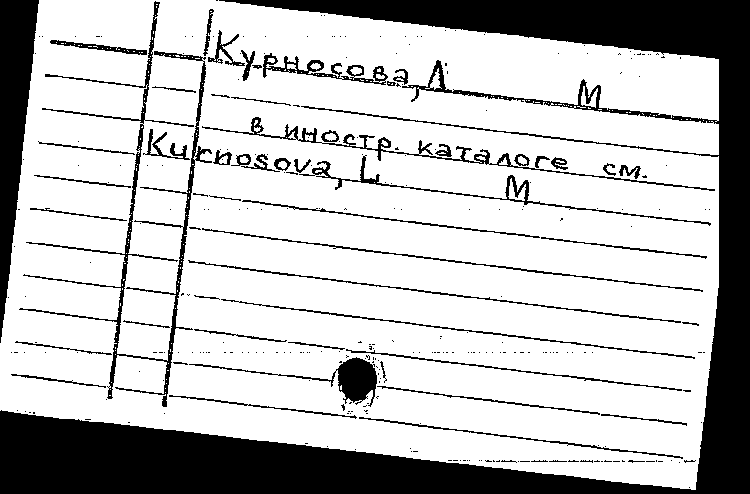 Курносова, Л М
в иностр. каталоге см.
Kurnosova, L M